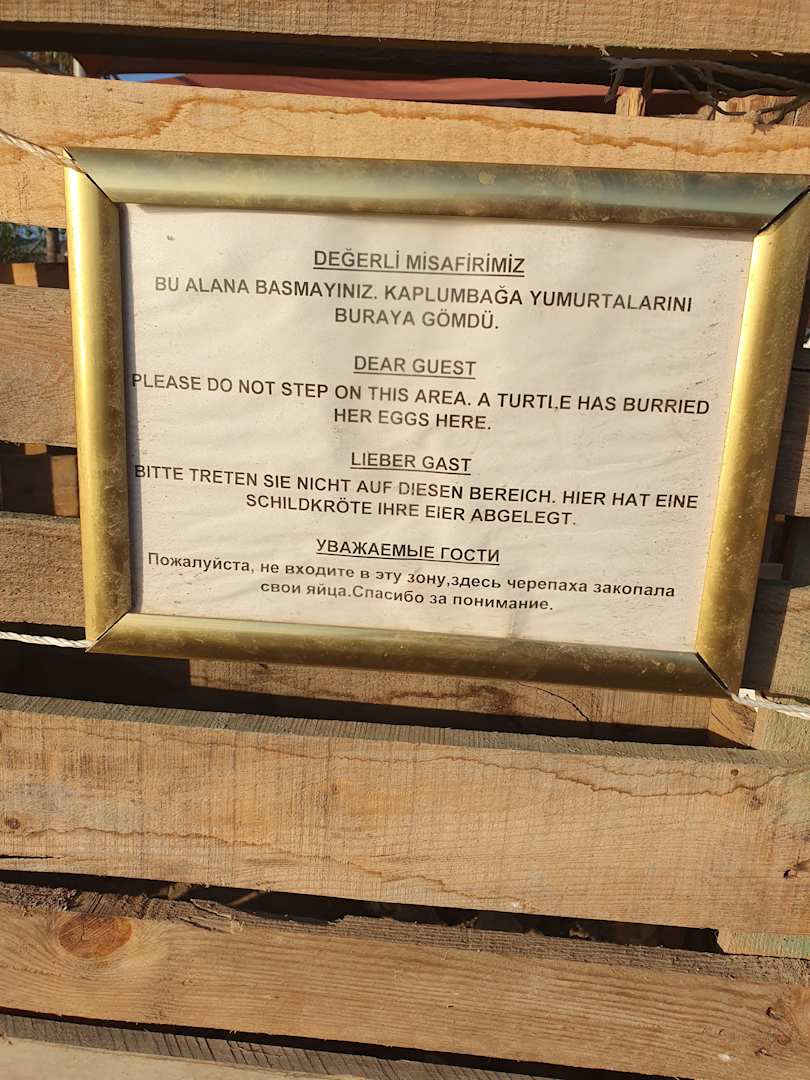 DEĞERLİ MİSAFİRİMİZ
BU ALANA BASMAYINIZ. KAPLUMBAĞA YUMURTALARINI
BURAYA GÖMDÜ.
DEAR GUEST
PLEASE DO NOT STEP ON THIS AREA. A TURTLE HAS BURRIED
HER EGGS HERE.
LIEBER GAST
BITTE TRETEN SIE NICHT AUF DIESEN BEREICH. HIER HAT EINE
SCHILDKRÖTE IHRE EIER ABGELEGT.
УВАЖАЕМЫЕ ГОСТИ
Пожалуйста, не входите в эту зону,здесь черепаха закопала
свои яйца.Спасибо за понимание.